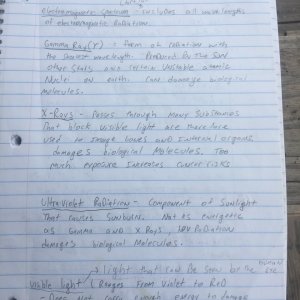 Electromagnetic Spectrum - includes all wavelengths
of electromagnetic Radiation.
Gamma Ray(γ) - form of radiation with
the shortest wavelength. Produced By the Sun/
other stars and certain unstable atomic
Nuclei on earth. Can damage biological
molecules.
X-Rays - Passes through many Substances
that block visible light and are therefore
used to image bones and internal organs.
damages Biological Molecules. Too
much exposure increases cancer risks
Ultraviolet Radiation - Component of Sunlight
that causes Sunburn. Not as energetic
as Gamma and X Rays, UV Radiation
damages biological Molecules.
light that can Be seen by the
eye
Visible light (Ranges From Violet to Red
- Does Not carry enough energy to damage